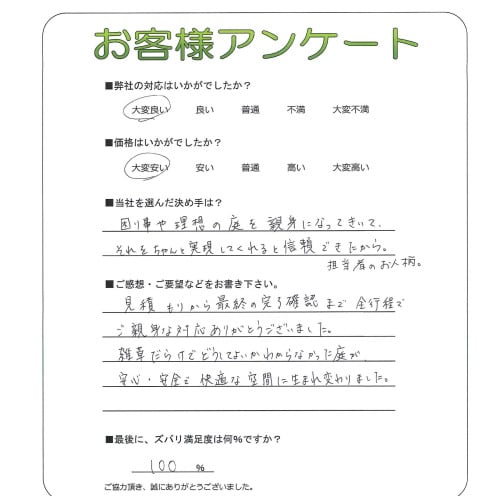 お客様アンケート
■弊社の対応はいかがでしたか？
大変良い 良い 普通 不満 大変不満
■価格はいかがでしたか？
大変安い 安い 普通 高い 大変高い
■当社を選んだ決め手は？
困り事や理想の庭を親身になってきいて、
それをちゃんと実現してくれると信頼できたから。
担当者のお人柄。
■ご感想・ご要望などをお書き下さい。
見積もりから最終の完了確認まで全行程で
ご親身な対応ありがとうございました。
雑草だらけでどうしてよいかわからなかった庭が、
安心・安全で快適な空間に生まれ変わりました。
■最後に、ズバリ満足度は何%ですか？
100 %
ご協力頂き、誠にありがとうございました。